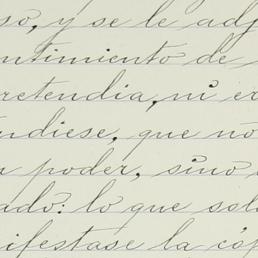 so, y se le adj
ntimiento de
retendia, ni er
ndiese, que no
poder, sino
ado: lo que sol
ifestase la cóp